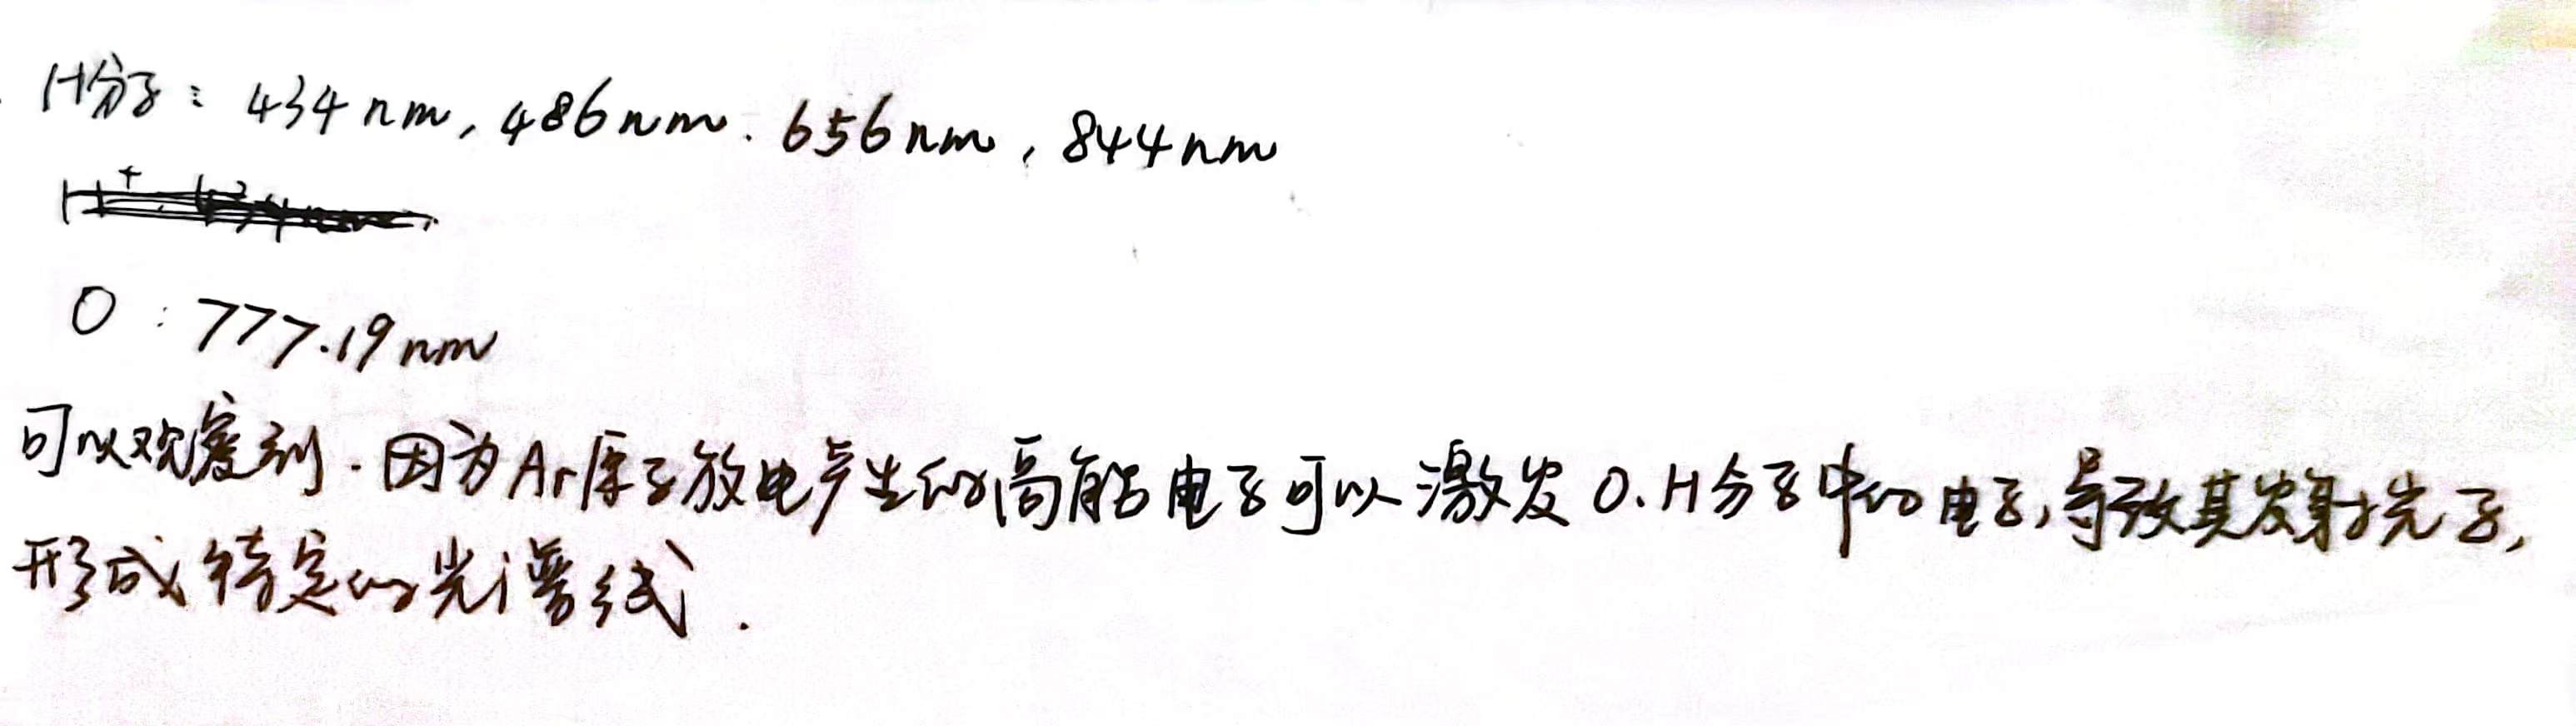 H分子：434nm，486nm．656nm，844nm
O：777.19nm
可以观察到．因为Ar原子放电产生的高能电子可以激发O．H分子中的电子，导致其发射光子，
形成特定的光谱线．